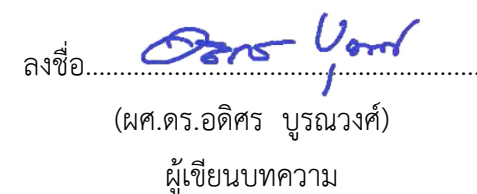 ลงชื่อ................................................
(ผศ.ดร.อดิศร บูรณวงศ์)
ผู้เขียนบทความ